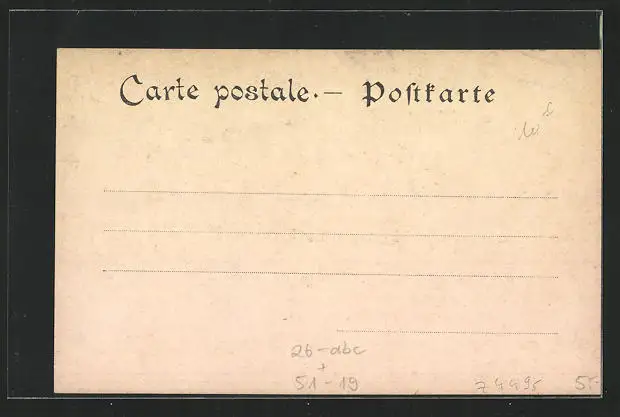 Carte postale.— Poſtkarte
26-abc
+
51-19
74495 55-